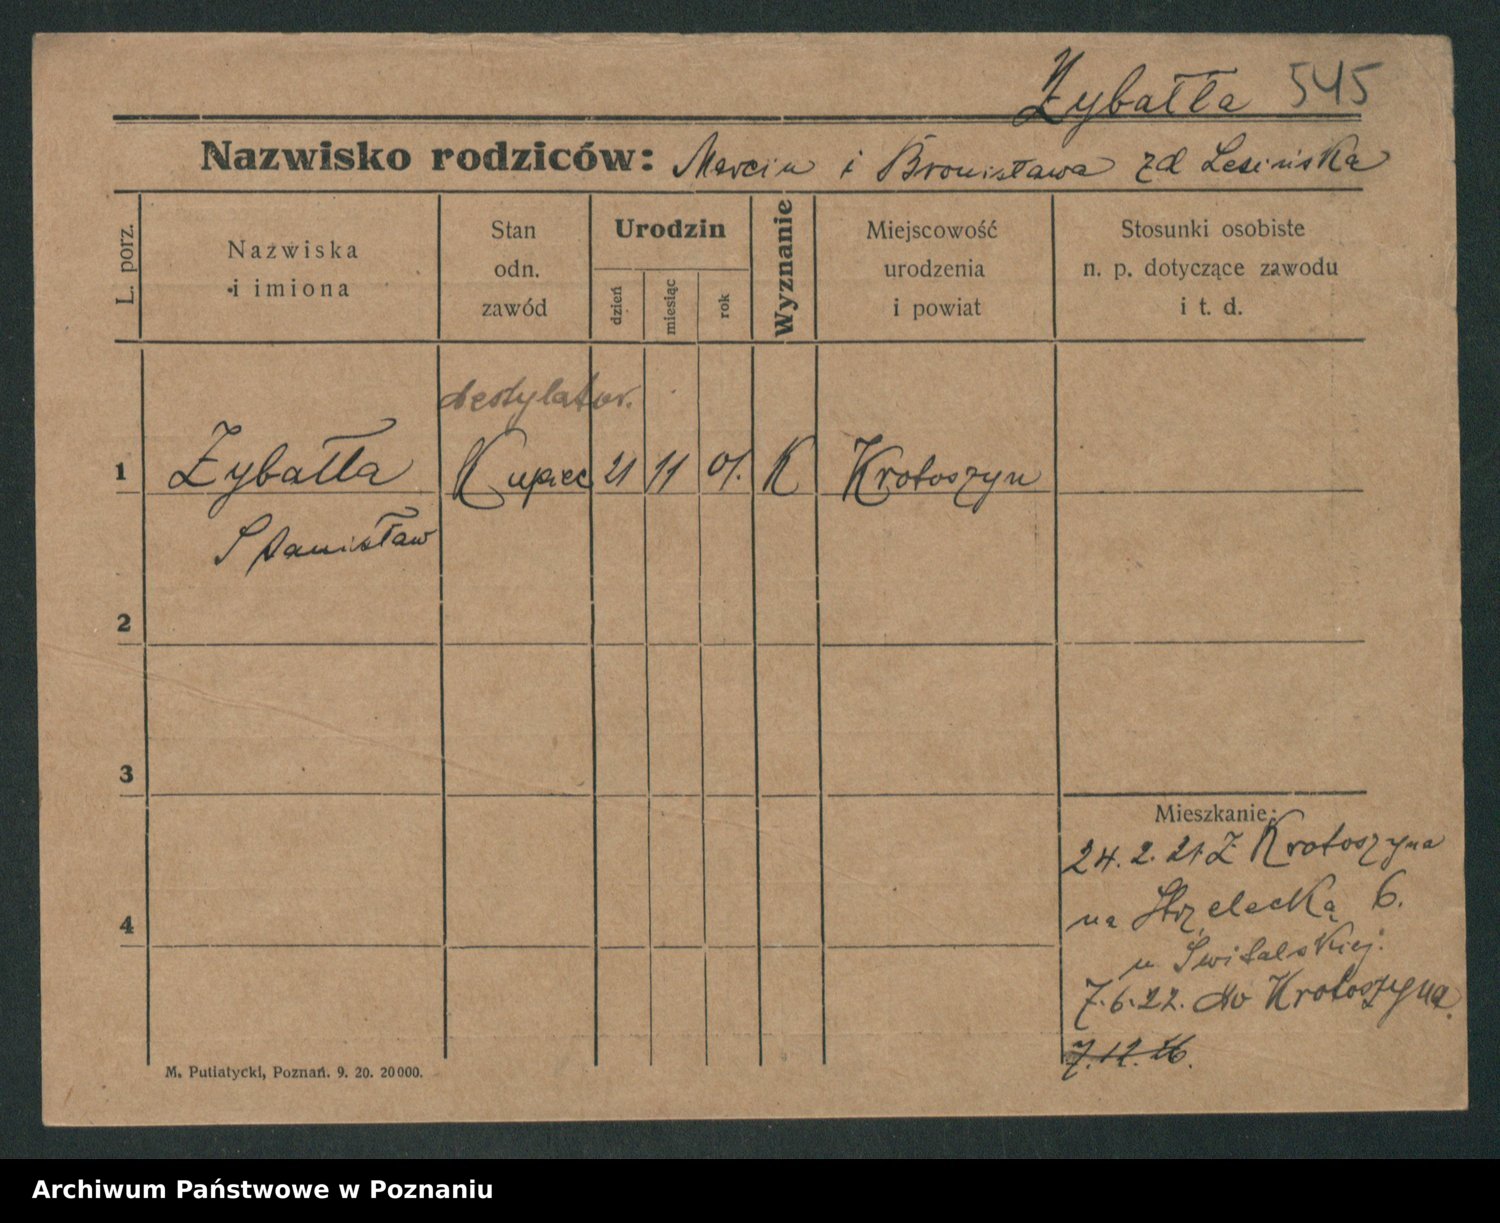 Zybałła 545
Nazwisko rodziców: Marcin i Bronisława zd Lesińska
L. porz.
Nazwiska
i imiona
Stan
odn.
zawód
Urodzin
dzień
miesiąc
rok
Wyznanie
Miejscowość
urodzenia
i powiat
Stosunki osobiste
n. p. dotyczące zawodu
i t. d.
destylator.
1 Zybałła Kupiec 21 11 01. K Krotoszyn
Stanisław
2
3
Mieszkanie:
24. 2. 21 Z Krotoszyna
na Strzelecką 6.
4
u Świtalskiej.
7.6.22. do Krotoszyna.
7.12.26.
M. Putiatycki, Poznań. 9. 20. 20000.
Archiwum Państwowe w Poznaniu